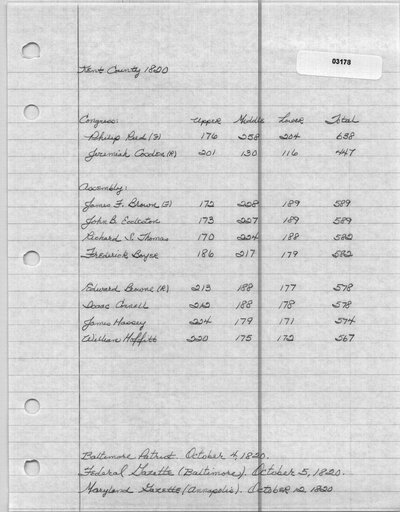 03178
Kent County 1820
Congress: Upper Middle Lower Total
Philip Reed (F) 176 258 204 638
Jeremiah Cosden (R) 201 130 116 447
Assembly:
James F. Brown (F) 172 228 189 589
John B. Eccleston 173 227 189 589
Richard S. Thomas 170 224 188 582
Frederick Boyer 186 217 179 582
Edward Browne (R) 213 188 177 578
Isaac Cannell 212 188 178 578
James Massey 224 179 171 574
William Moffitt 220 175 172 567
Baltimore Patriot. October 4, 1820.
Federal Gazette (Baltimore). October 5, 1820.
Maryland Gazette (Annapolis). October 12, 1820